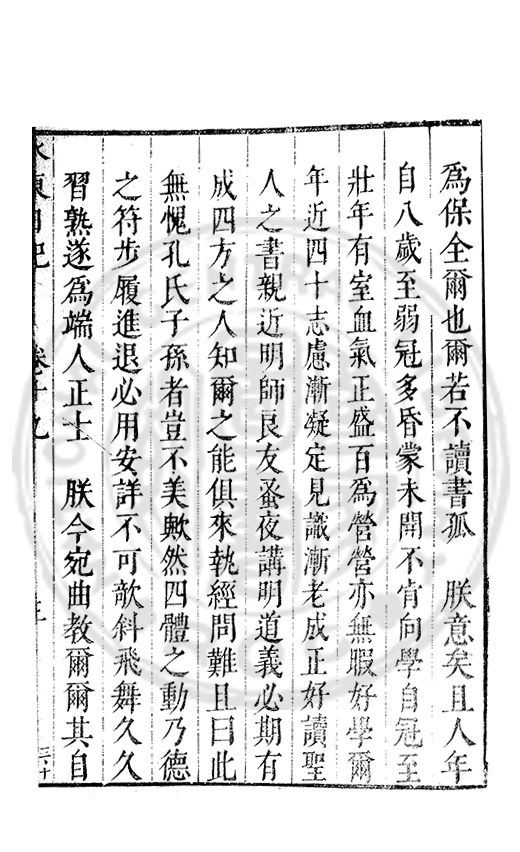 爲保全爾也爾若不讀書孤　朕意矣且人年
自八歲至弱冠多昏蒙未開不肯向學自冠至
壯年有室血氣正盛百爲營營亦無暇好學爾
年近四十志慮漸凝定見識漸老成正好讀聖
人之書親近明師良友蚤夜講明道義必期有
成四方之人知爾之能俱來執經問難且曰此
無愧孔氏子孫者豈不美歟然四體之動乃德
之符步履進退必用安詳不可欹斜飛舞久久
習熟遂爲端人正士　朕今宛曲教爾爾其自
水東日記　卷十九